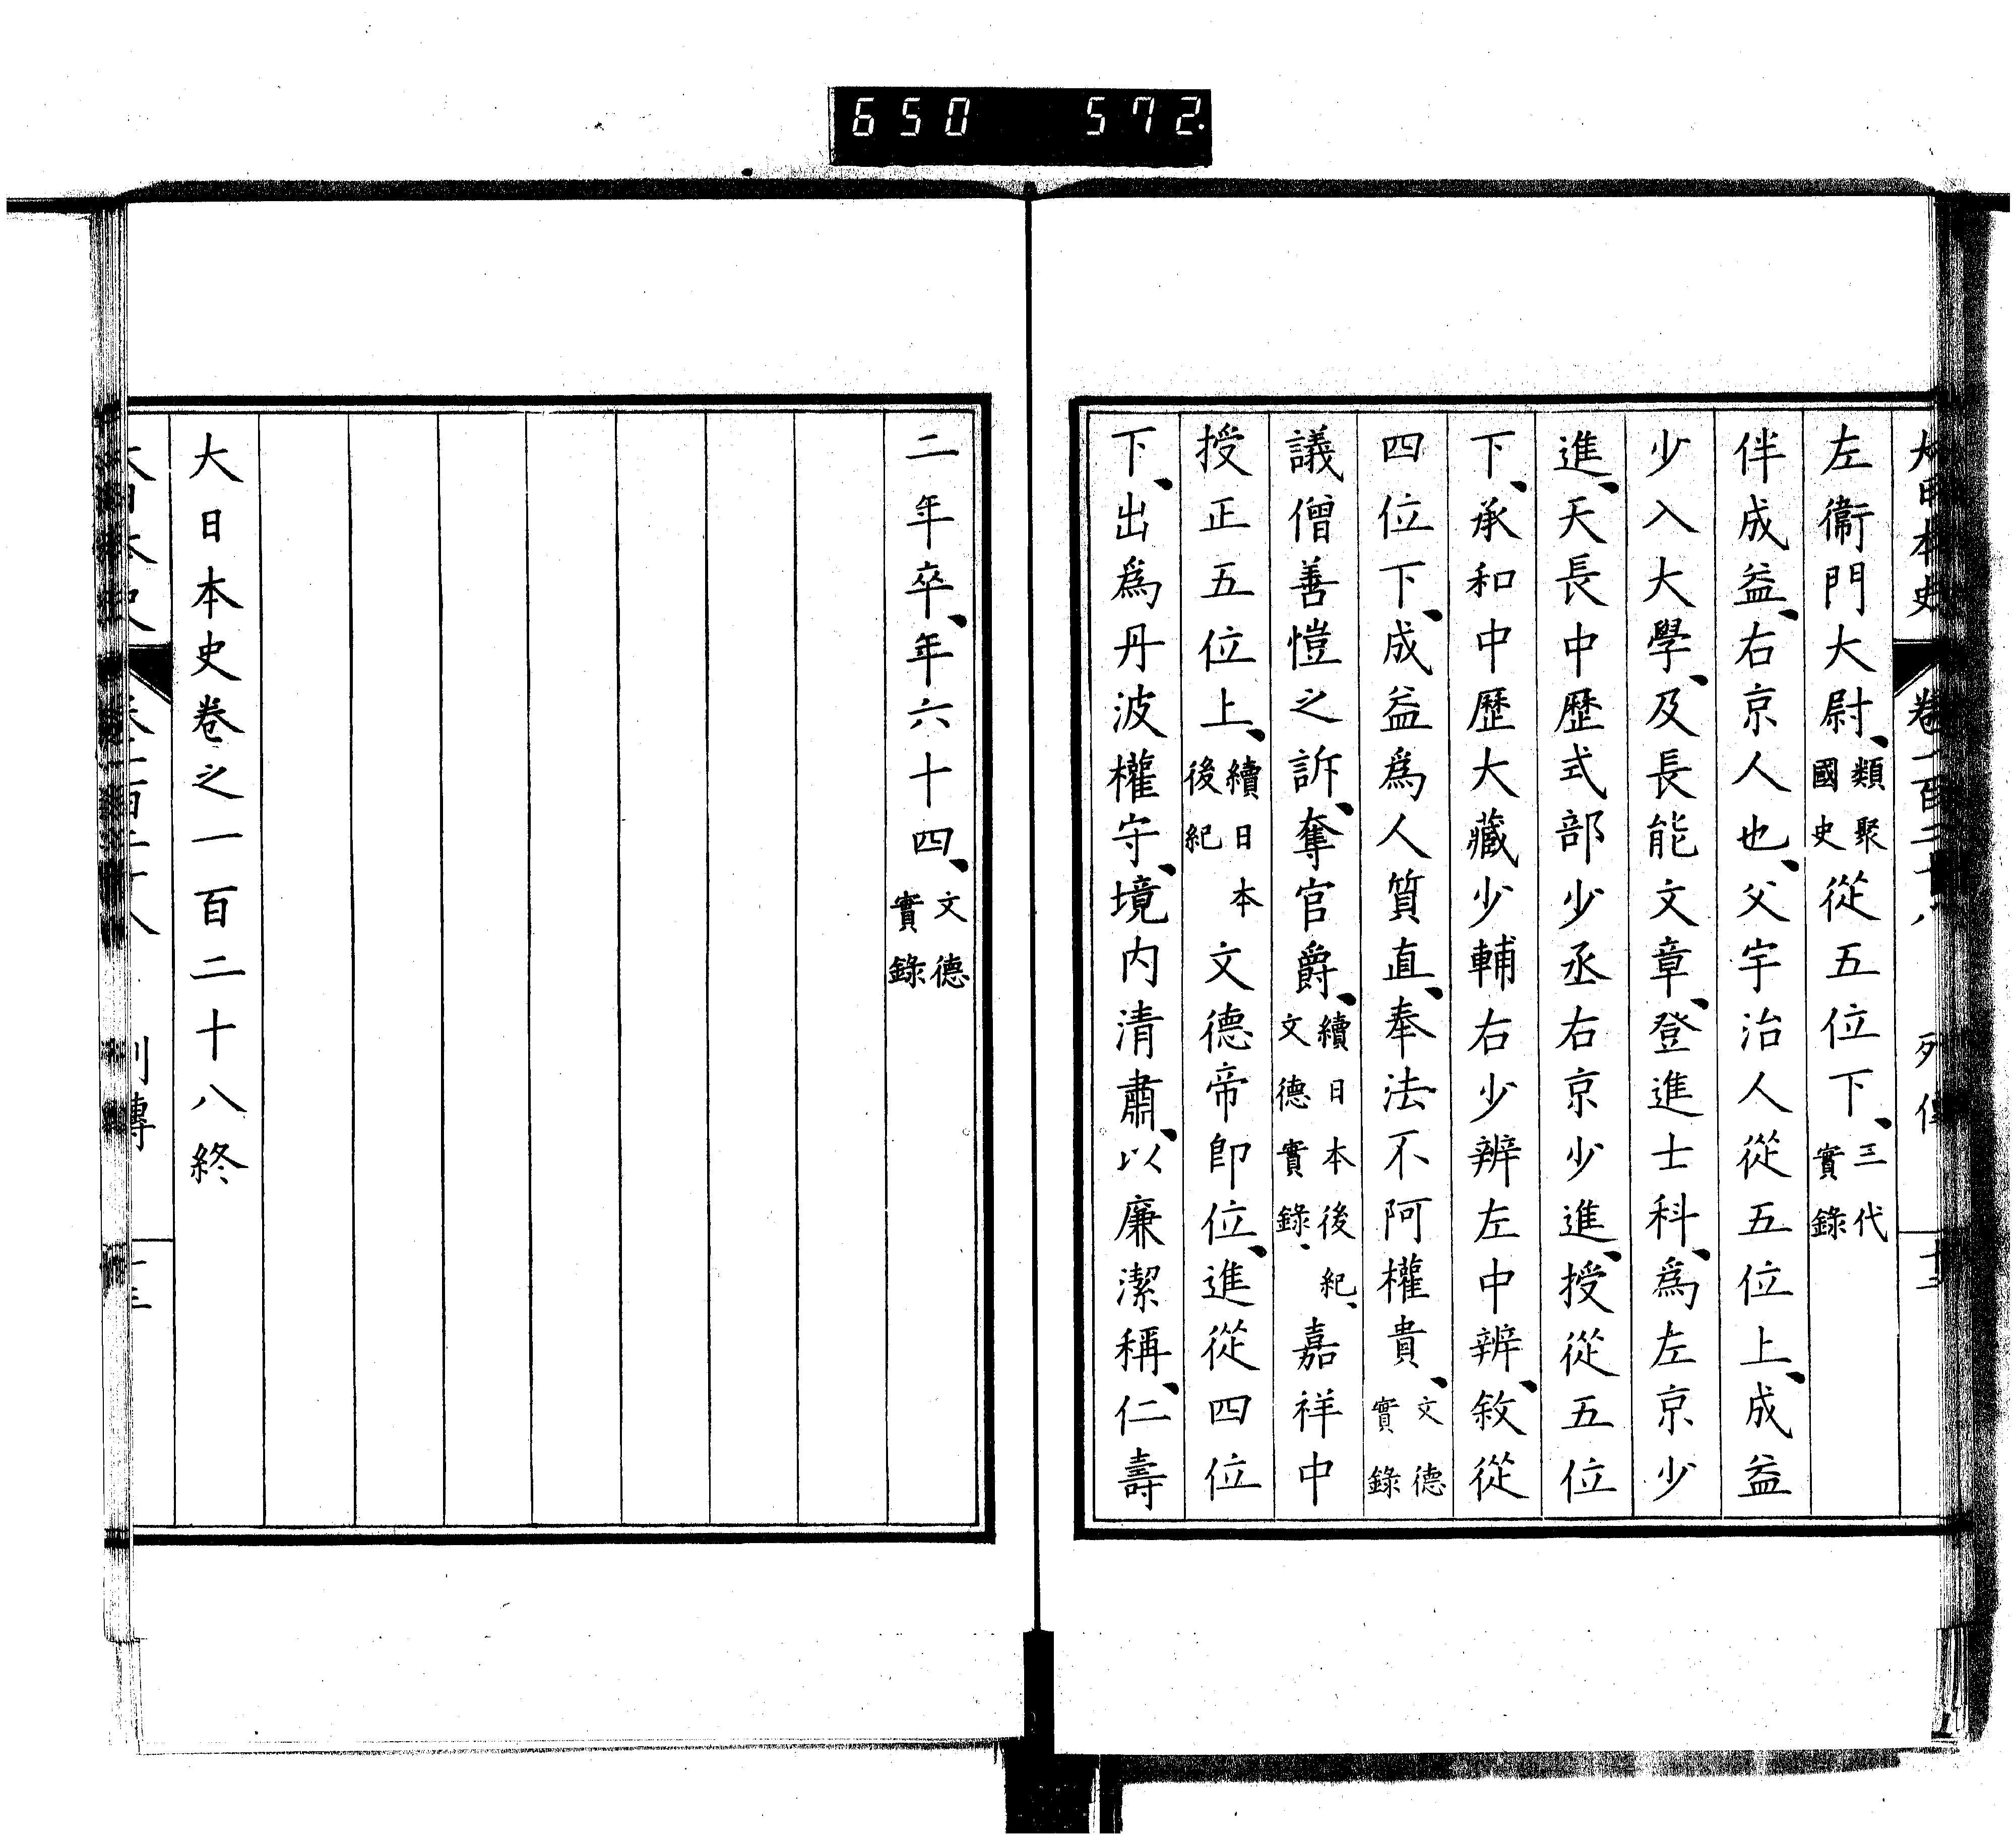 650 572.
大日本史 卷一百二十八 列傳 十二
左衞門大尉、類聚國史從五位下、三代實錄
伴成益、右京人也、父宇治人從五位上、成益
少入大學、及長能文章、登進士科、爲左京少
進、天長中歷式部少丞右京少進、授從五位
下、承和中歷大藏少輔右少辨左中辨、敘從
四位下、成益爲人質直、奉法不阿權貴、文德實錄
議僧善愷之訴、奪官爵、續日本後紀、文德實錄、嘉祥中
授正五位上、續日本後紀文德帝卽位、進從四位
下、出爲丹波權守、境内清肅、以廉潔稱、仁壽
二年卒、年六十四、文德實錄
大日本史卷之一百二十八終